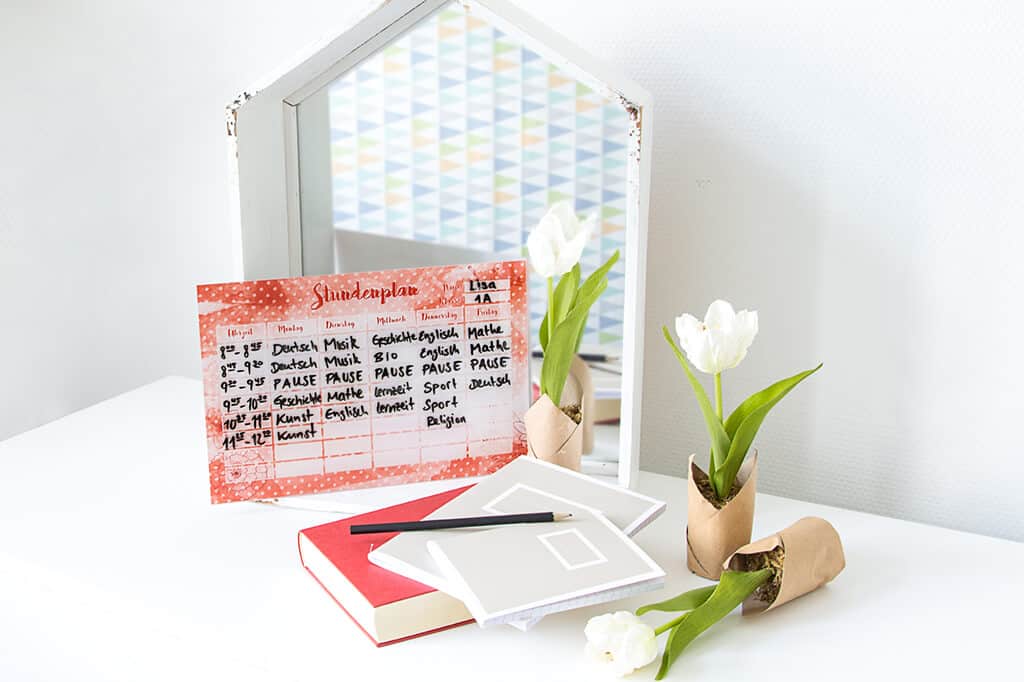 Stundenplan
Lisa
Klasse 1A
Uhrzeit Montag Dienstag Mittwoch Donnerstag Freitag
8⁰⁰-8⁴⁵ Deutsch Musik Geschichte Englisch Mathe
Deutsch Musik BIO Englisch Mathe
PAUSE PAUSE PAUSE PAUSE PAUSE
Geschichte Mathe Lernzeit Sport Deutsch
Kunst Englisch Lernzeit Sport
Kunst Religion